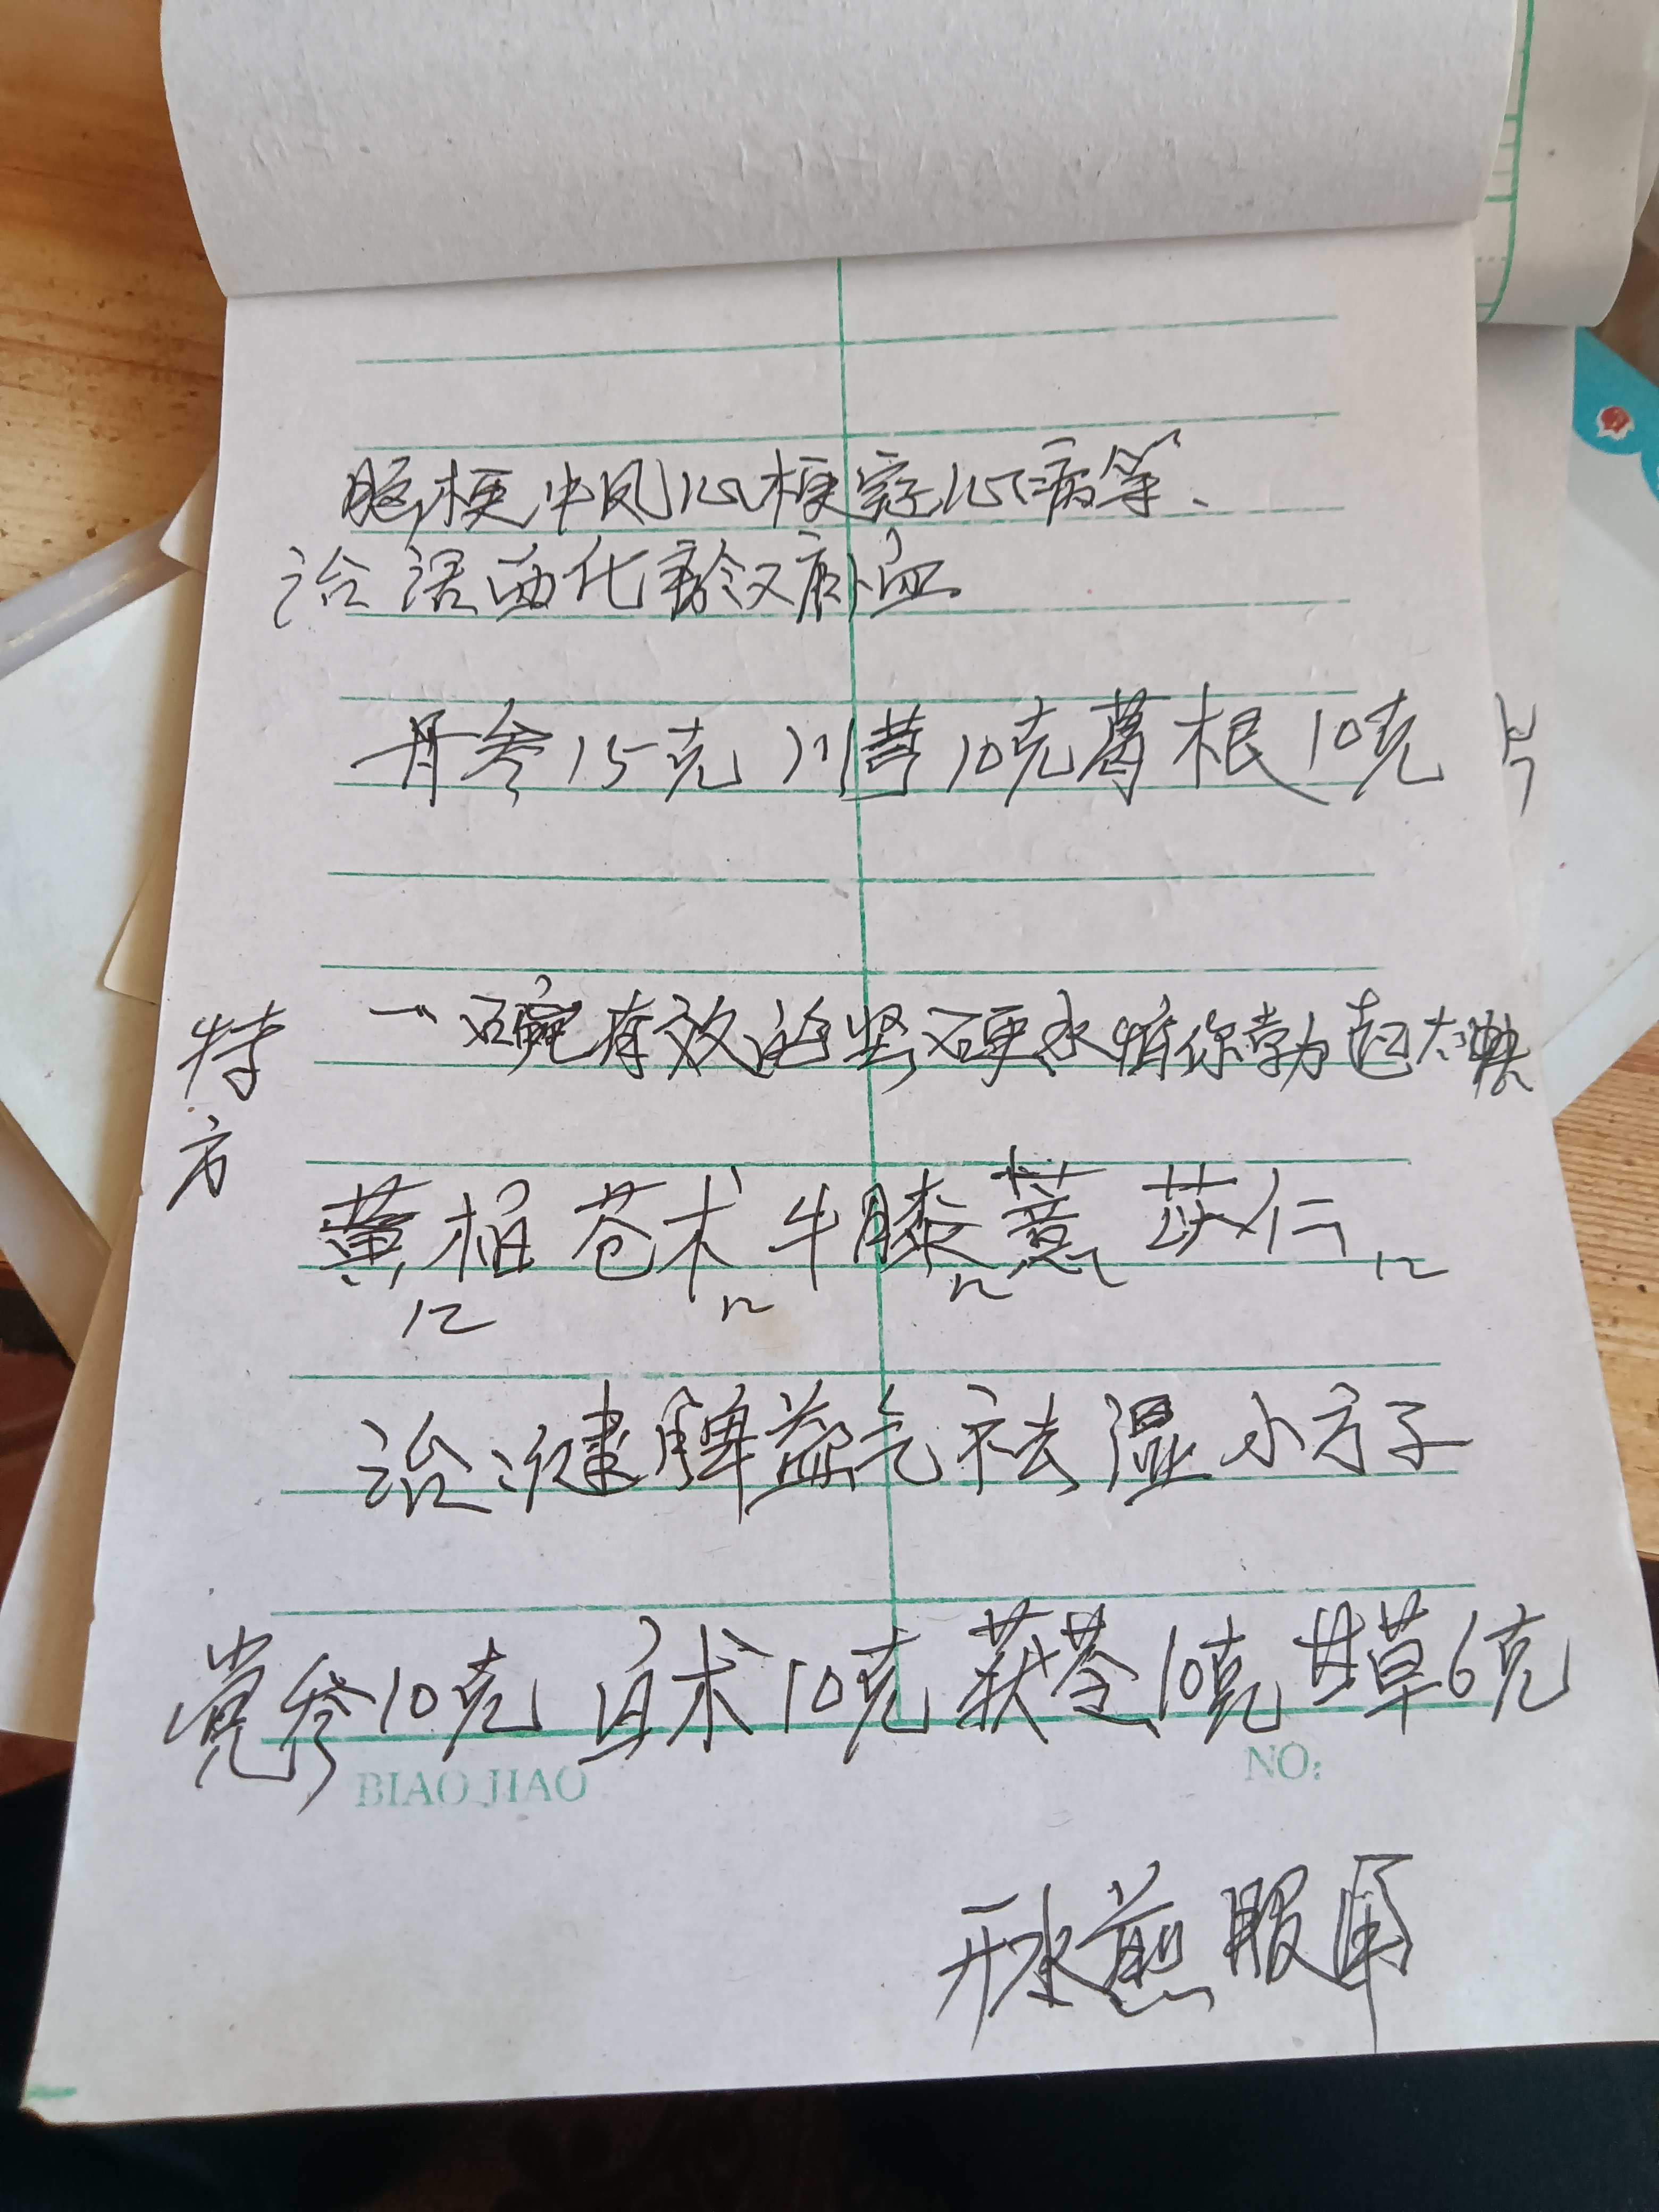 脑梗中风心梗冠心病等、
治活血化瘀又补血
丹参15克 川芎10克 葛根10克
特方
一碗有效治坚硬水 你勃起太快
黄柏 苍术 牛膝 薏苡仁
12 12 12 12
治 健脾益气祛湿小方子
党参10克 白术10克 茯苓10克 甘草6克
BIAO JIAO NO:
开水煎服用